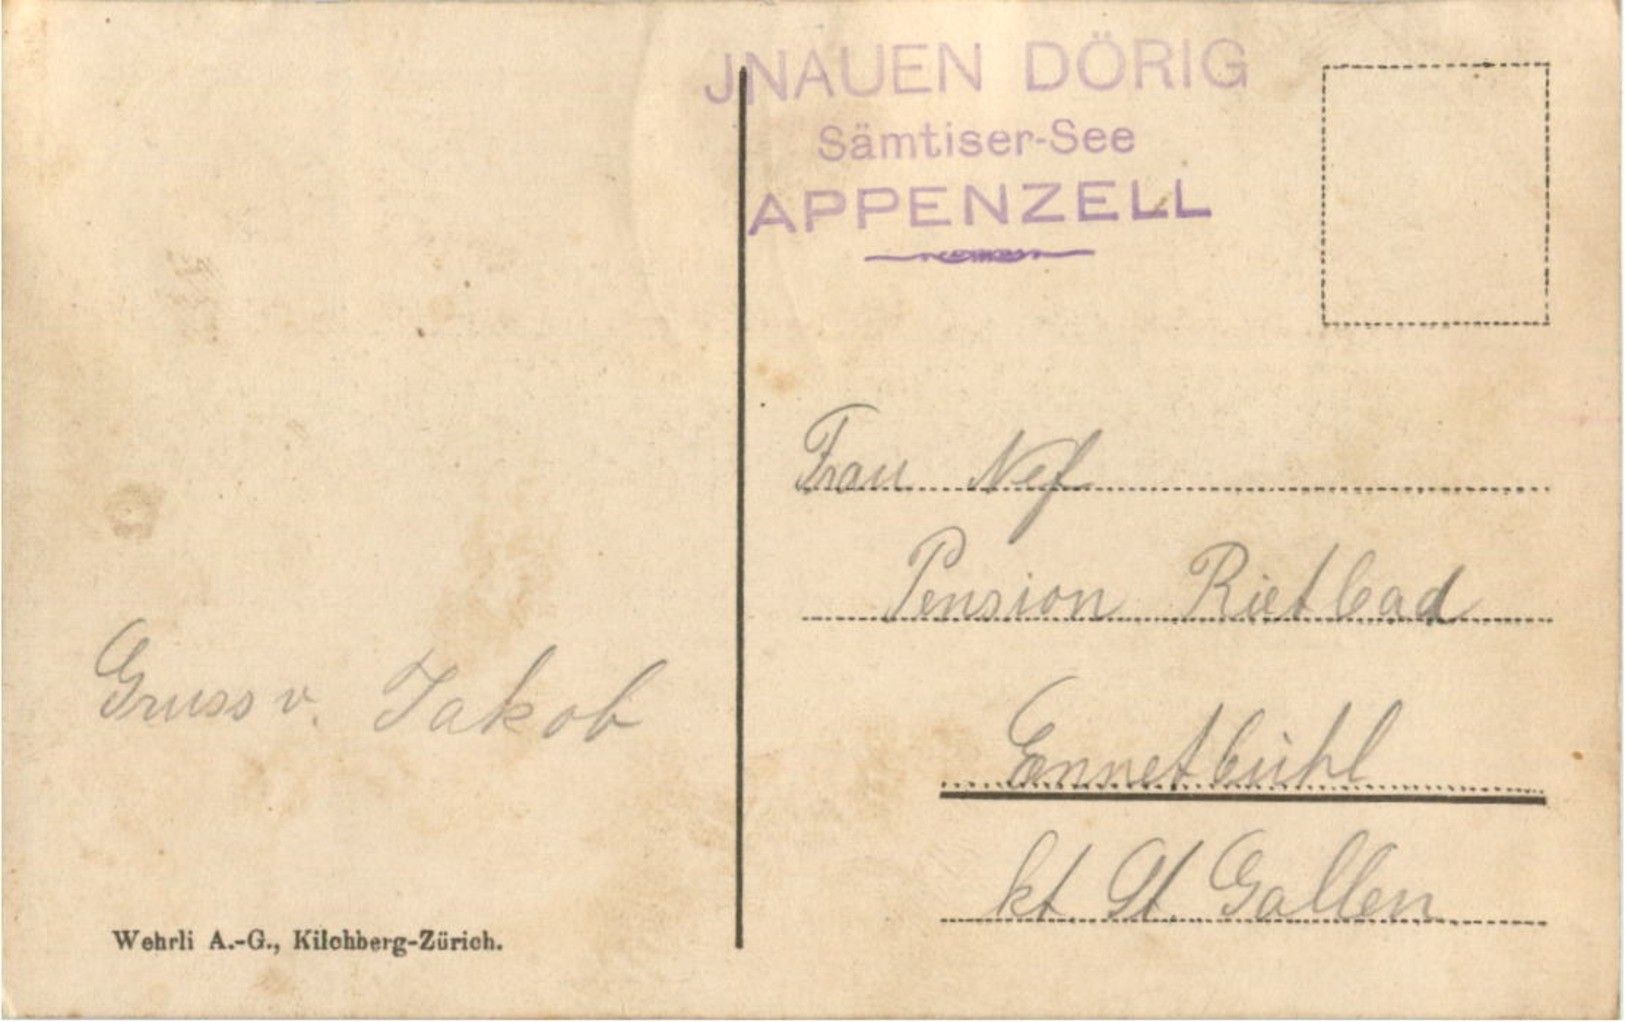 JNAUEN DÖRIG
Sämtiser-See
APPENZELL
Frau Nef
Pension Rietbad
Ennetbühl
kt. St. Gallen
Gruss v. Jakob
Wehrli A.-G., Kilchberg-Zürich.